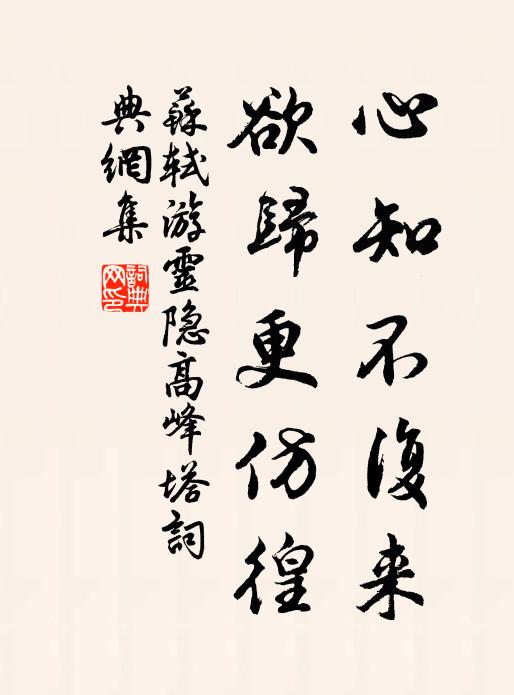 心知不復来
欲歸更仿徨
蘇軾游靈隐高峰塔詞
典網集
詞典网印